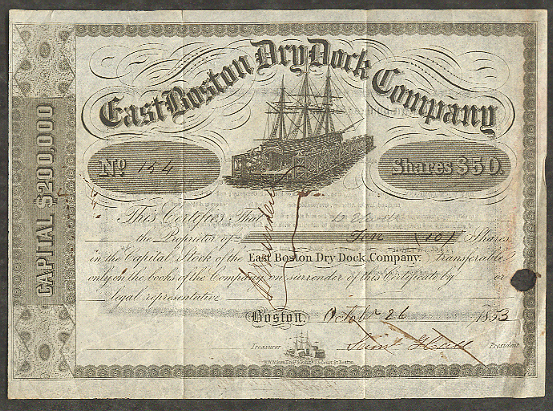 East Boston Dry Dock Company
No 154
Shares $50.
CAPITAL $200,000
This Certifies that
the Proprietor of Ten (10) Shares
in the Capital Stock of the East Boston Dry Dock Company. Transferable
only on the books of the Company on surrender of this Certificate by or
legal representative
Boston, October 26 1853
Treasurer President